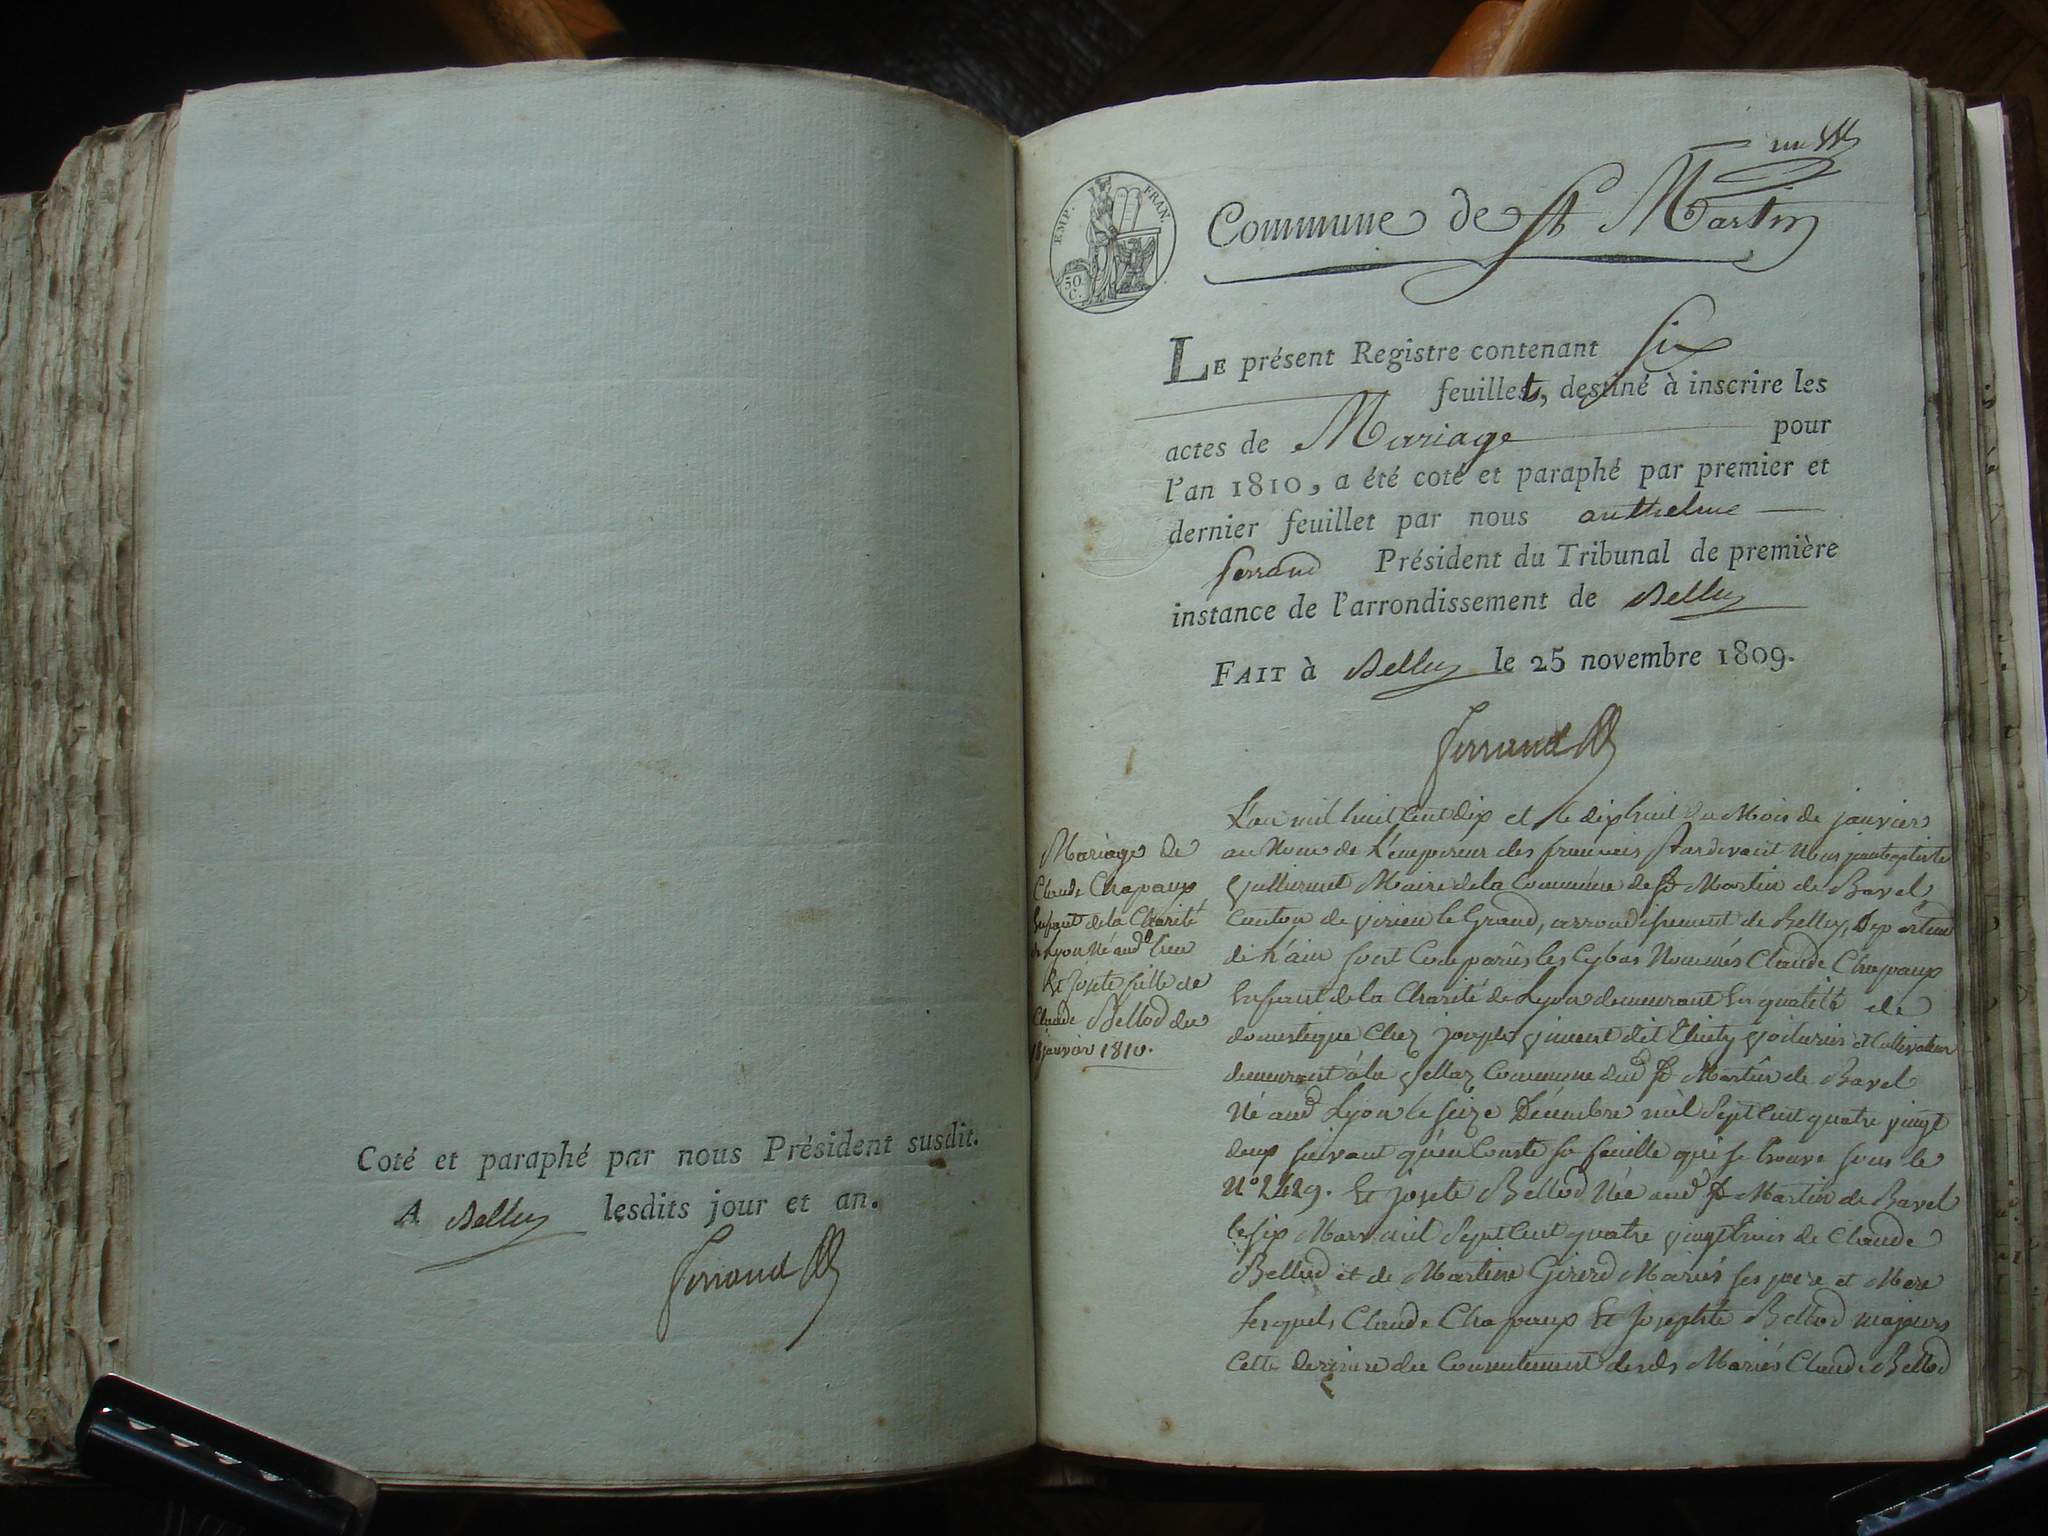 Coté et paraphé par nous Président susdit.
A Belley lesdits jour et an.
Ferrand
un
EMP. FRAN.
50 C.
Commune de St Martin
LE présent Registre contenant six
feuillets, destiné à inscrire les
actes de Mariage pour
l'an 1810, a été coté et paraphé par premier et
dernier feuillet par nous anthelme
ferrand Président du Tribunal de première
instance de l'arrondissement de Belley
FAIT à Belley le 25 novembre 1809.
Ferrand
Mariage de
Claude Chapaux
Enfant de la Charité
de Lyon Né aud lieu
Et Josete fille de
Claude Bellod du
18 janvier 1810.
L'an mil huit cent dix et le dix huit du Mois de janvier
au Nom de L'empereur des francais pardevant Nous jean baptiste
Maire de la Commune de St Martin de Bavel
Canton de virieu le Grand, arrondissement de Belley, Departem
de L'ain sont Comparus les Cybas Nommés Claude Chapaux
Enfant de la Charité de Lyon demeurant En qualité de
domestique Chez joseph dit voiturier et Cultivateur
demeurant à la Commune dud St Martin de Bavel
Né aud Lyon le seize Décembre mil sept cent quatre vingt
deux suivant qu'en Conste sa feuille qui se trouve sous le
N° 2429. Et Josete Bellod Née aud St Martin de Bavel
le six Mars mil sept cent quatre vingt trois de Claude
Bellod et de Martine Girerd Mariés ses pere et Mere
lesquels Claude Chapaux Et Josephte Bellod majeurs
Cette derniere du Consentement desds Mariés Claude Bellod